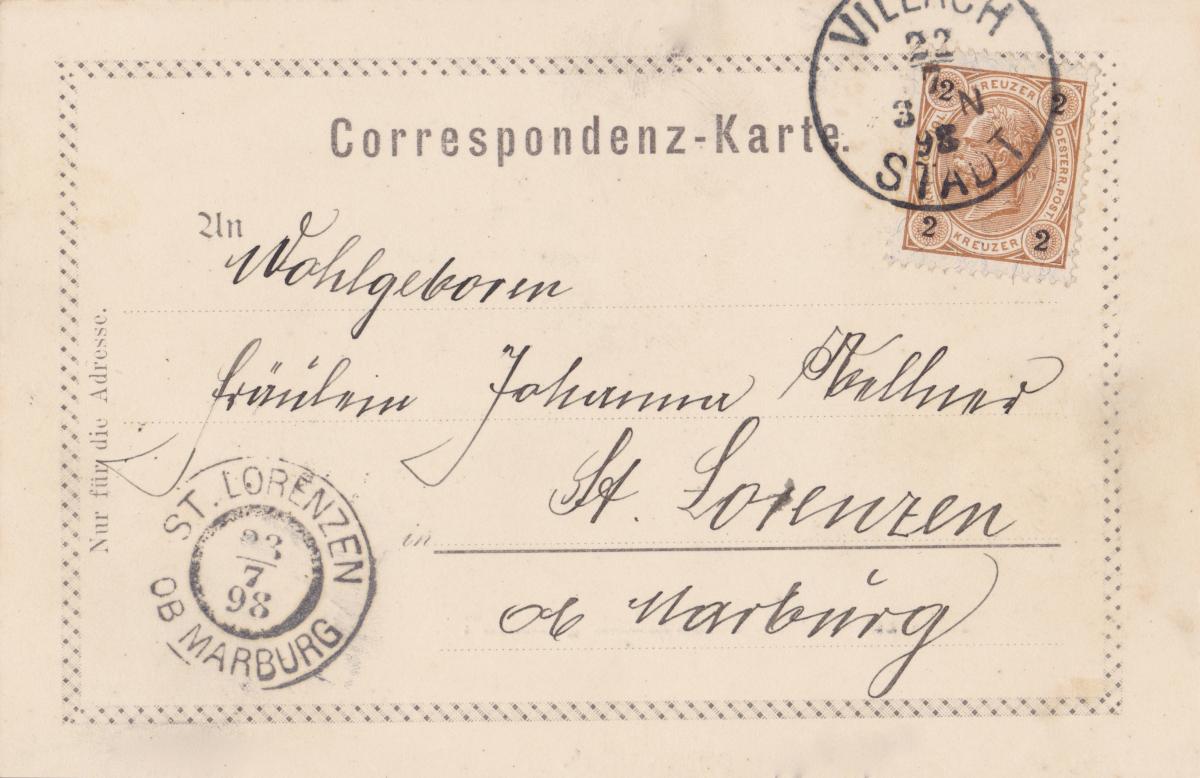 VILLACH
22
7
3 N
98
STADT
2 KREUZER 2
OESTERR. POST.
2 KREUZER 2
Correspondenz-Karte.
An
Wohlgeboren
Fräulein Johanna Kellner
in St. Lorenzen
ob Marburg
Nur für die Adresse.
ST. LORENZEN
23
7
98
OB MARBURG